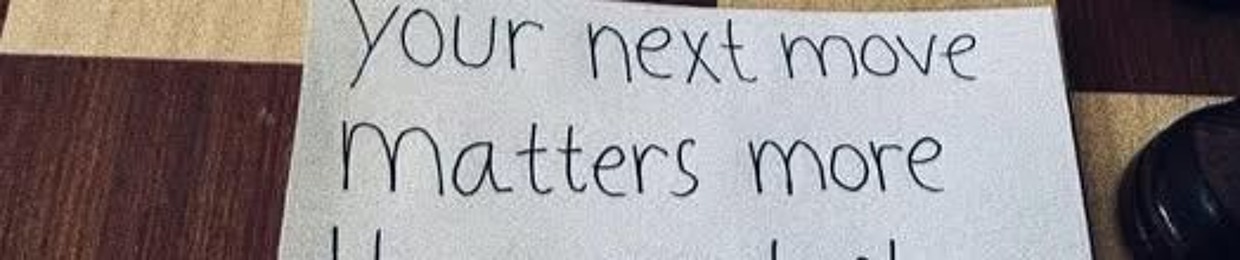 Your next move
Matters more